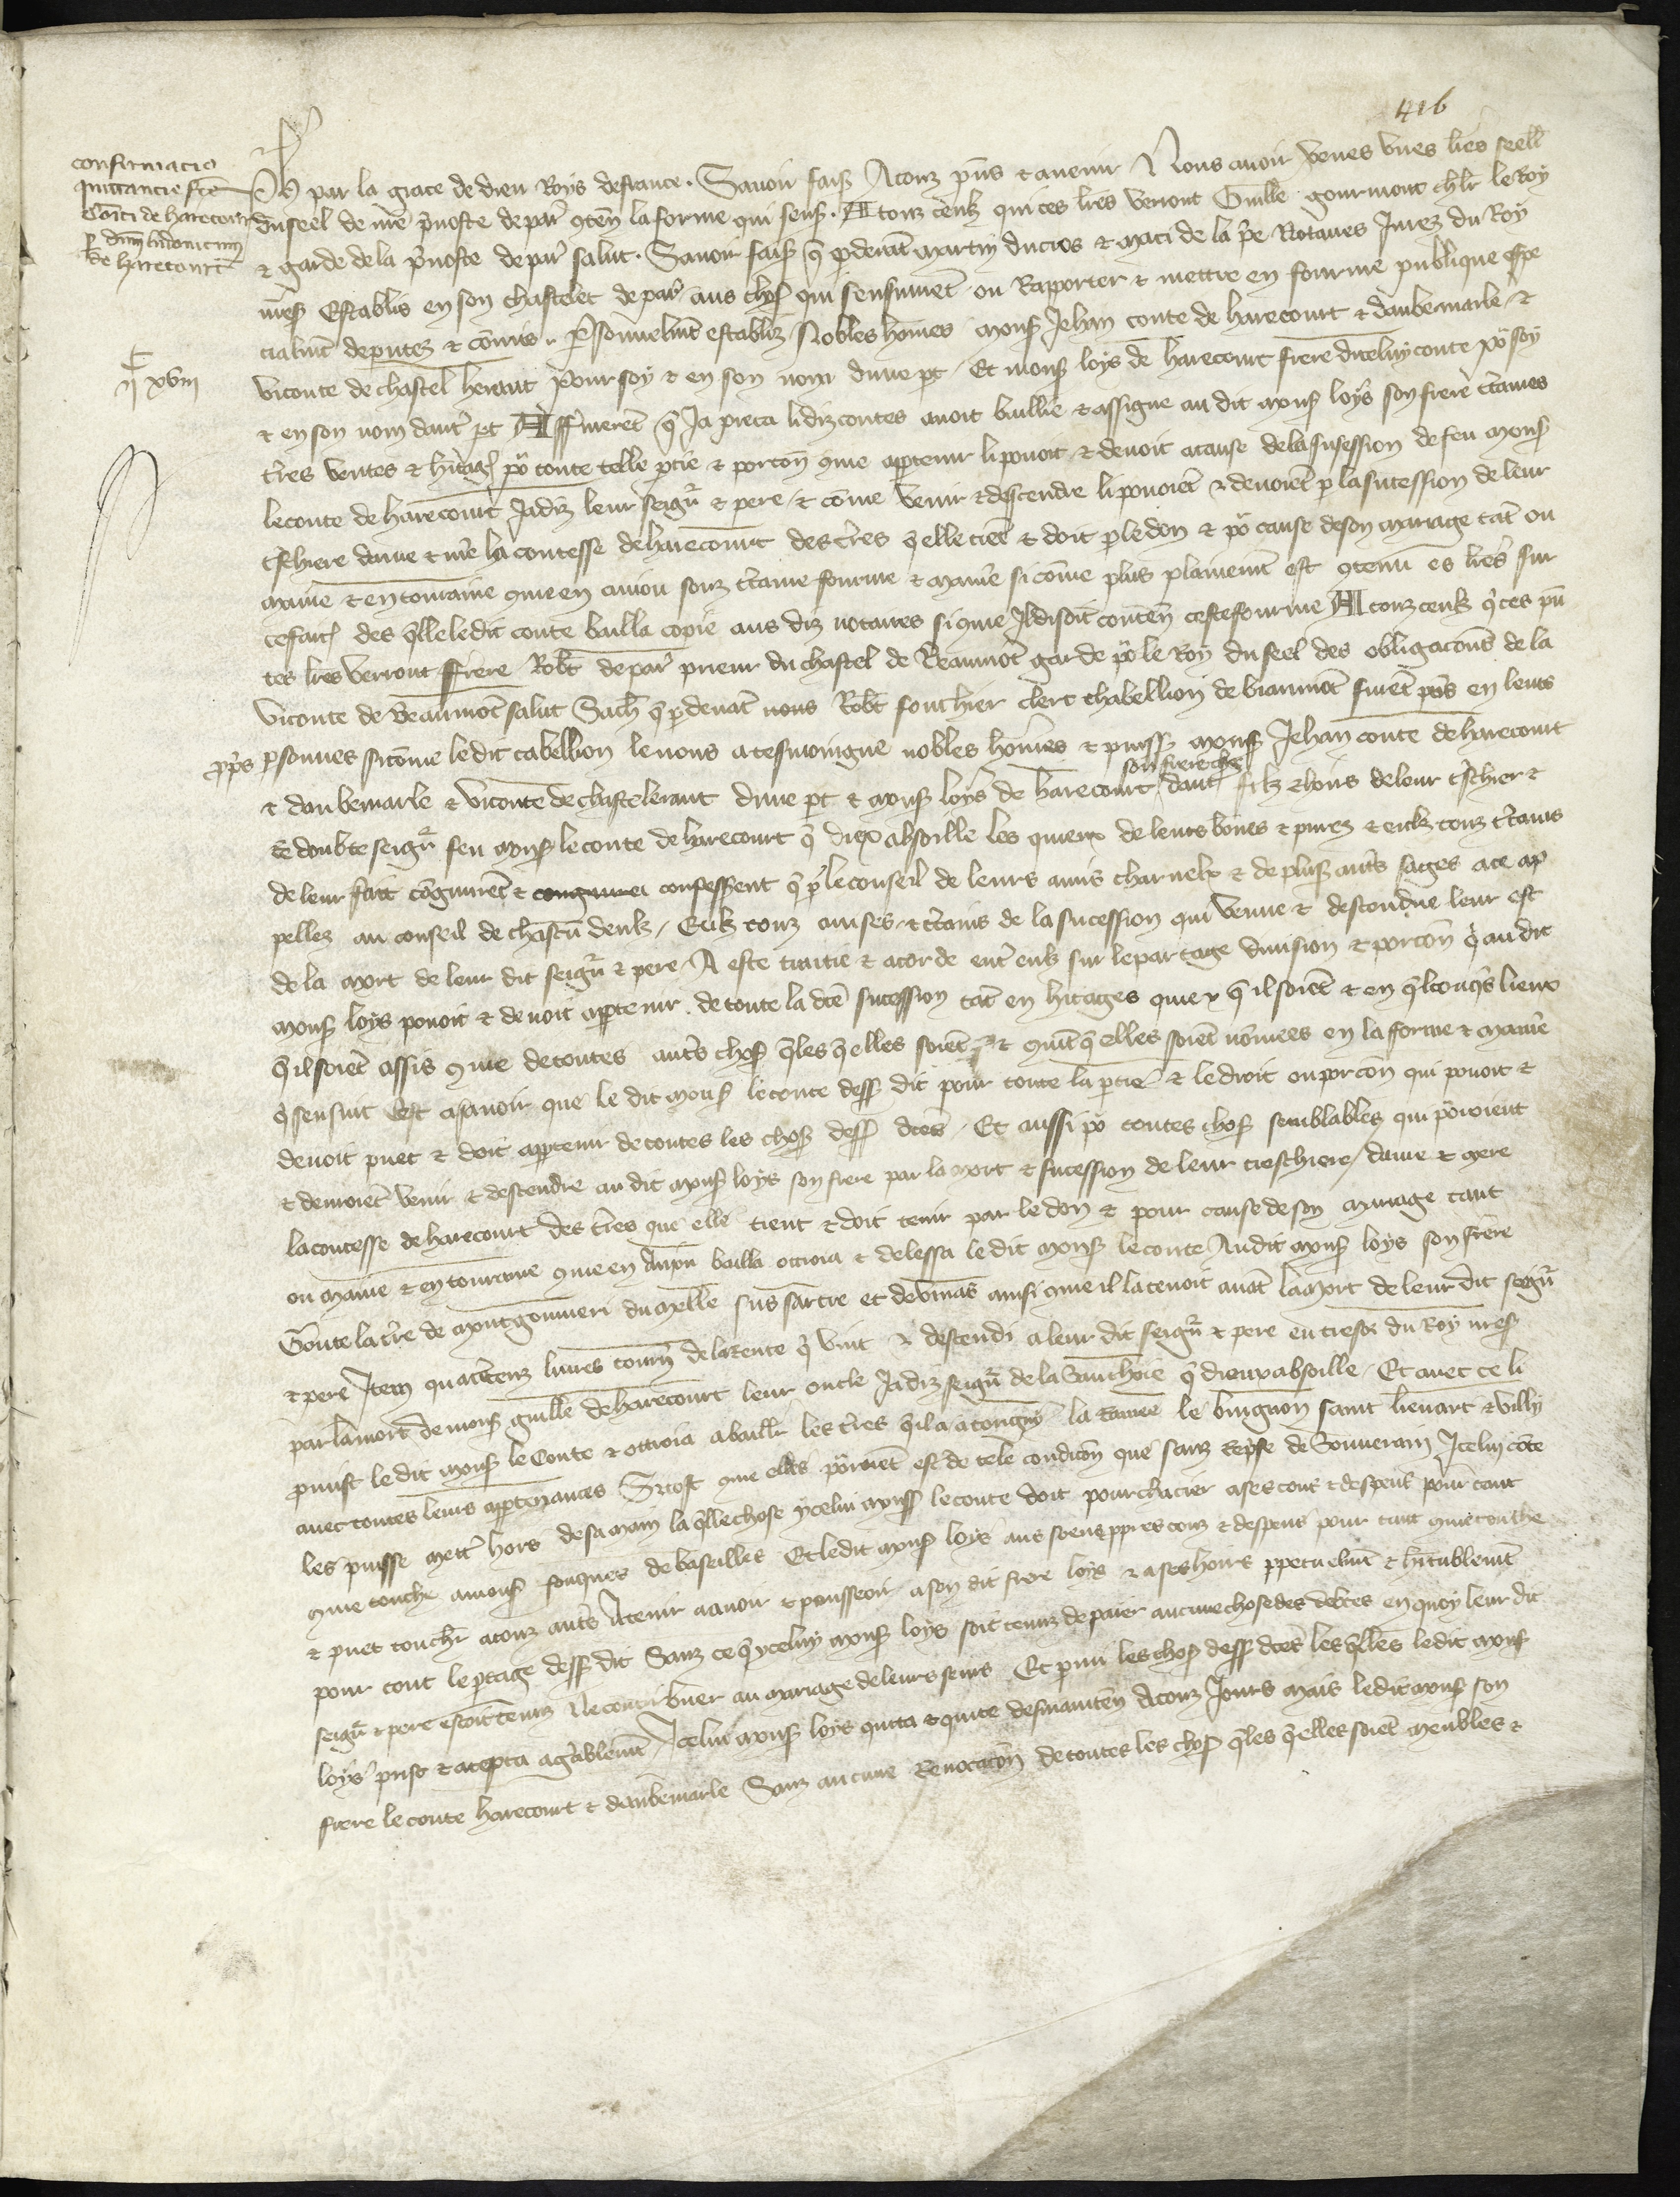 416
confirmacio
quittancie fce
Comiti de harecourt
p dnm ludovicum
de harecourt
IIc xviii
Ph par la grace de dieu Roys de france. Savoir fais A touz pns et avenir Nous avoir veues unes lres seell
du seel de nre prevoste de par conten la forme qui sens. A touz ceulz qui ces lres verront Guille gourmont chlr le Roy
et garde de la prevoste de par salut. Savoir fais que pdevant martin du cros et maci de la Notaires Jurez du Roy
nres Establis en son chastelet de par aus choses qui sensuivent ou Rapporter et mettre en fourme publique espe
cialmt deputez et comis. Psonnelmt establiz Nobles homes mons Jehan conte de harecourt et daubemarle et
viconte de chastel heraut Pour soy et en son nom dune pt. Et mons loys de harecourt frere diceluy conte por soy
et en son nom dautre pt Affirmeret que Ja pieca li diz contes avoit baillie et assigne au dit mons loys son frere ctaines
tres rentes et hitages por toute telle ptie et porcon come aptenir li povoit et devoit a cause de la sucession de feu mons
le conte de harecourt Jadiz leur seigr et pere et come venir et descendre li povoiet et devoiet p la sucession de leur
tschiere dame et mere la contesse de harecourt des tres quelle tiet et doit p le don et por cause de son mariage tat ou
maine et en touraine come en aniou souz ctaine fourme et maniere si come plus plainemt est contenu es lres sur
ce faites des quelle le dit conte bailla copie aus diz notaires si come Il disoit conten ceste fourme A touz ceulz qui ces pn
tes lres verront Frere Robt de par prieur du chastel de Beaumot garde por le Roy du seel des obligacons de la
viconte de Beaumot salut Sach que pdevat nous Robt fouchier clerc tabellion de biaumot furet pns en leurs
pprs psonnes si come le dit tabellion le nous a tesmoingne nobles homes et puiss mons Jehan conte de harecourt
et daubemarle et viconte de chasteleraut dune pt et mons loys de harecourt son frere chlr daut filz et hoirs de leur tschier et
redoubte seigr feu mons le conte de harecourt que diex absoille les quiex de leurs bones et pures et eulz touz ctains
de leur fait congnuret et congnure confesserent que p le conseil de leurs amis charnelx et de plus autrs sages a ce ap
pellez au conseil de chascun deulz, Eulz touz avises et ctains de la sucession qui venue et descendue leur est
de la mort de leur dit seigr et pere A este traitie et acorde entr eulz sur le partage division et porcon que au dit
mons loys povoit et devoit aptenir de toute la dce sucession tat en hitages quiex que il soiet et en qlconqs lieux
que il soiet assis come de toutes autrs choses qles quelles soiet et comet quelles soiet nomees en la forme et maniere
que sensuit Cest asavoir que le dit mons le conte dess dit pour toute la ptie et le droit ou porcon qui povoit et
devoit puet et doit aptenir de toutes les choses dess dces. Et aussi por toutes choses semblables qui porroient
et devroiet venir et descendre au dit mons loys son frere par la mort et sucession de leur treschiere dame et mere
la contesse de harecourt des tres que elle tient et doit tenir par le don et pour cause de son mariage tant
ou maine et en touraine come en Aniou bailla ottroia et delessa le dit mons le conte Audit mons loys son frere
Toute la tre de montgommeri du melle sus sartre et de vinas ainsi come il la tenoit avat la mort de leur dit seigr
et pere Item quatre cenz livres tourn de la Rente que vint et descendi a leur dit seigr et pere eu tresor du Roy nres
par la mort de mons guille de harecourt leur oncle Jadiz seigr de la saucoie que dieux absoille. Et avec ce li
promist le dit mons le Conte et ottroia a baillr les tres quil a a tongny la Ramee le buignon saint lienart et villy
avec toutes leurs aptenances Si tost come elles porroiet est de tele condicon que sanz Repse de Souverain Icelui cote
les puisse mettre hors de sa main la quelle chose ycelui mons le conte doit pourchacier a ses couz et despens pour tant
come touche a mons fouques de baseilles Et le dit mons loys aus soens ppres couz et despens pour tant come touche
et puet touchr a touz autrs A tenir a avoir et pousseoir a son dit frere loys et a ses hoirs ppetuelmt et hitablemt
pour tout le ptage dess dit Sanz ce que yceluy mons loys soit tenuz de paier aucune chose des debtes en quoy leur dit
seigr et pere estoit tenuz Ne contribuer au mariage de leurs seurs Et pmi les choses dess dces les quelles le dit mons
loys prist et accepta agreablemt Icelui mons loys quitta et quite desmainten A touz Jours mais le dit mons son
frere le conte harecourt et daubemarle Sanz aucune Revocacon de toutes les choses qles quelles soiet meubles et